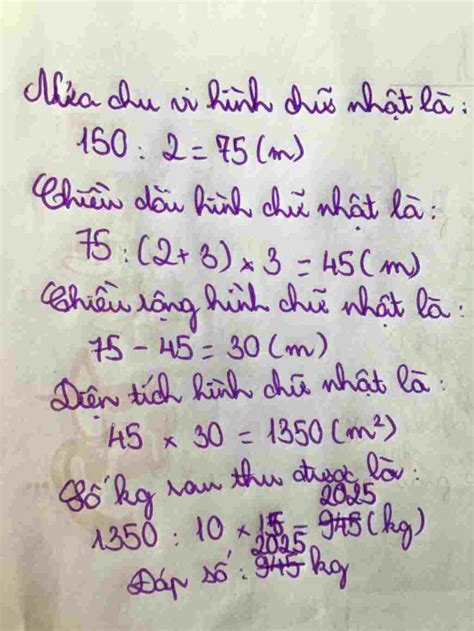 Nửa chu vi hình chữ nhật là:
150 : 2 = 75 (m)
Chiều dài hình chữ nhật là:
75 : (2 + 3) × 3 = 45 (m)
Chiều rộng hình chữ nhật là:
75 - 45 = 30 (m)
Diện tích hình chữ nhật là:
45 × 30 = 1350 (m²)
Số kg rau thu được là:
2025
1350 : 10 × 15 = 945 (kg)
2025
Đáp số : 945 kg